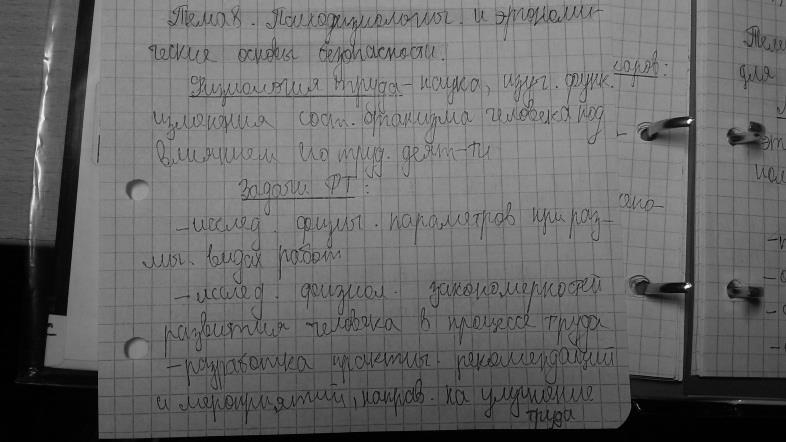 Тема 8. Психофизиологич. и эргономи-
ческие основы безопасности.
Физиология труда - наука, изуч. функ.
изменения сост. организма человека под
влиянием его труд. деят-ти
Задачи ФТ:
-исслед. физиол. параметров при раз-
ных видах работ
-исслед. физиол. закономерностей
развития человека в процессе труда
-разработка практич. рекомендаций
и мероприятий, направ. на улучшение
труда
для